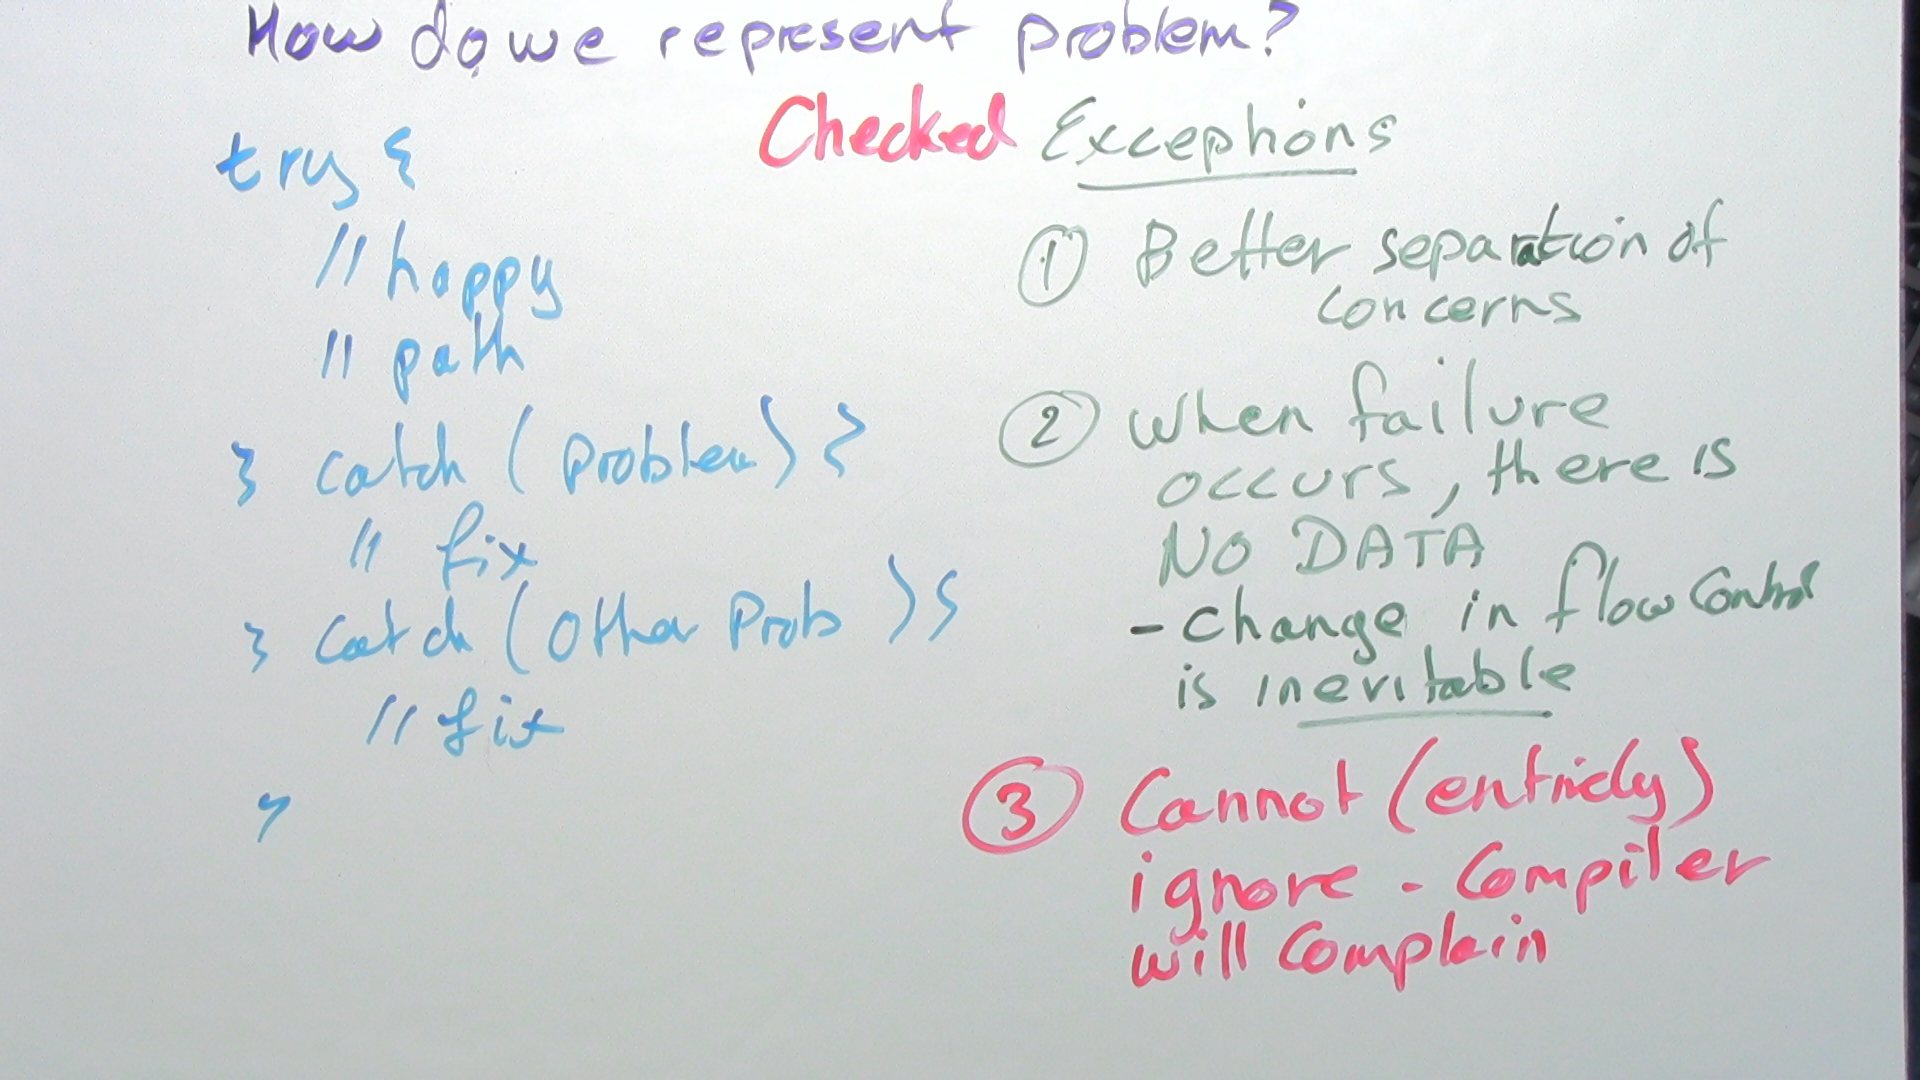 How do we represent problem?
Checked Exceptions
try {
// happy
// path
} catch (Problem) {
// fix
} catch (Other Prob) {
// fix
}
① Better separation of
concerns
② when failure
occurs, there is
NO DATA
- change in flow control
is inevitable
③ Cannot (entirely)
ignore - Compiler
will complain